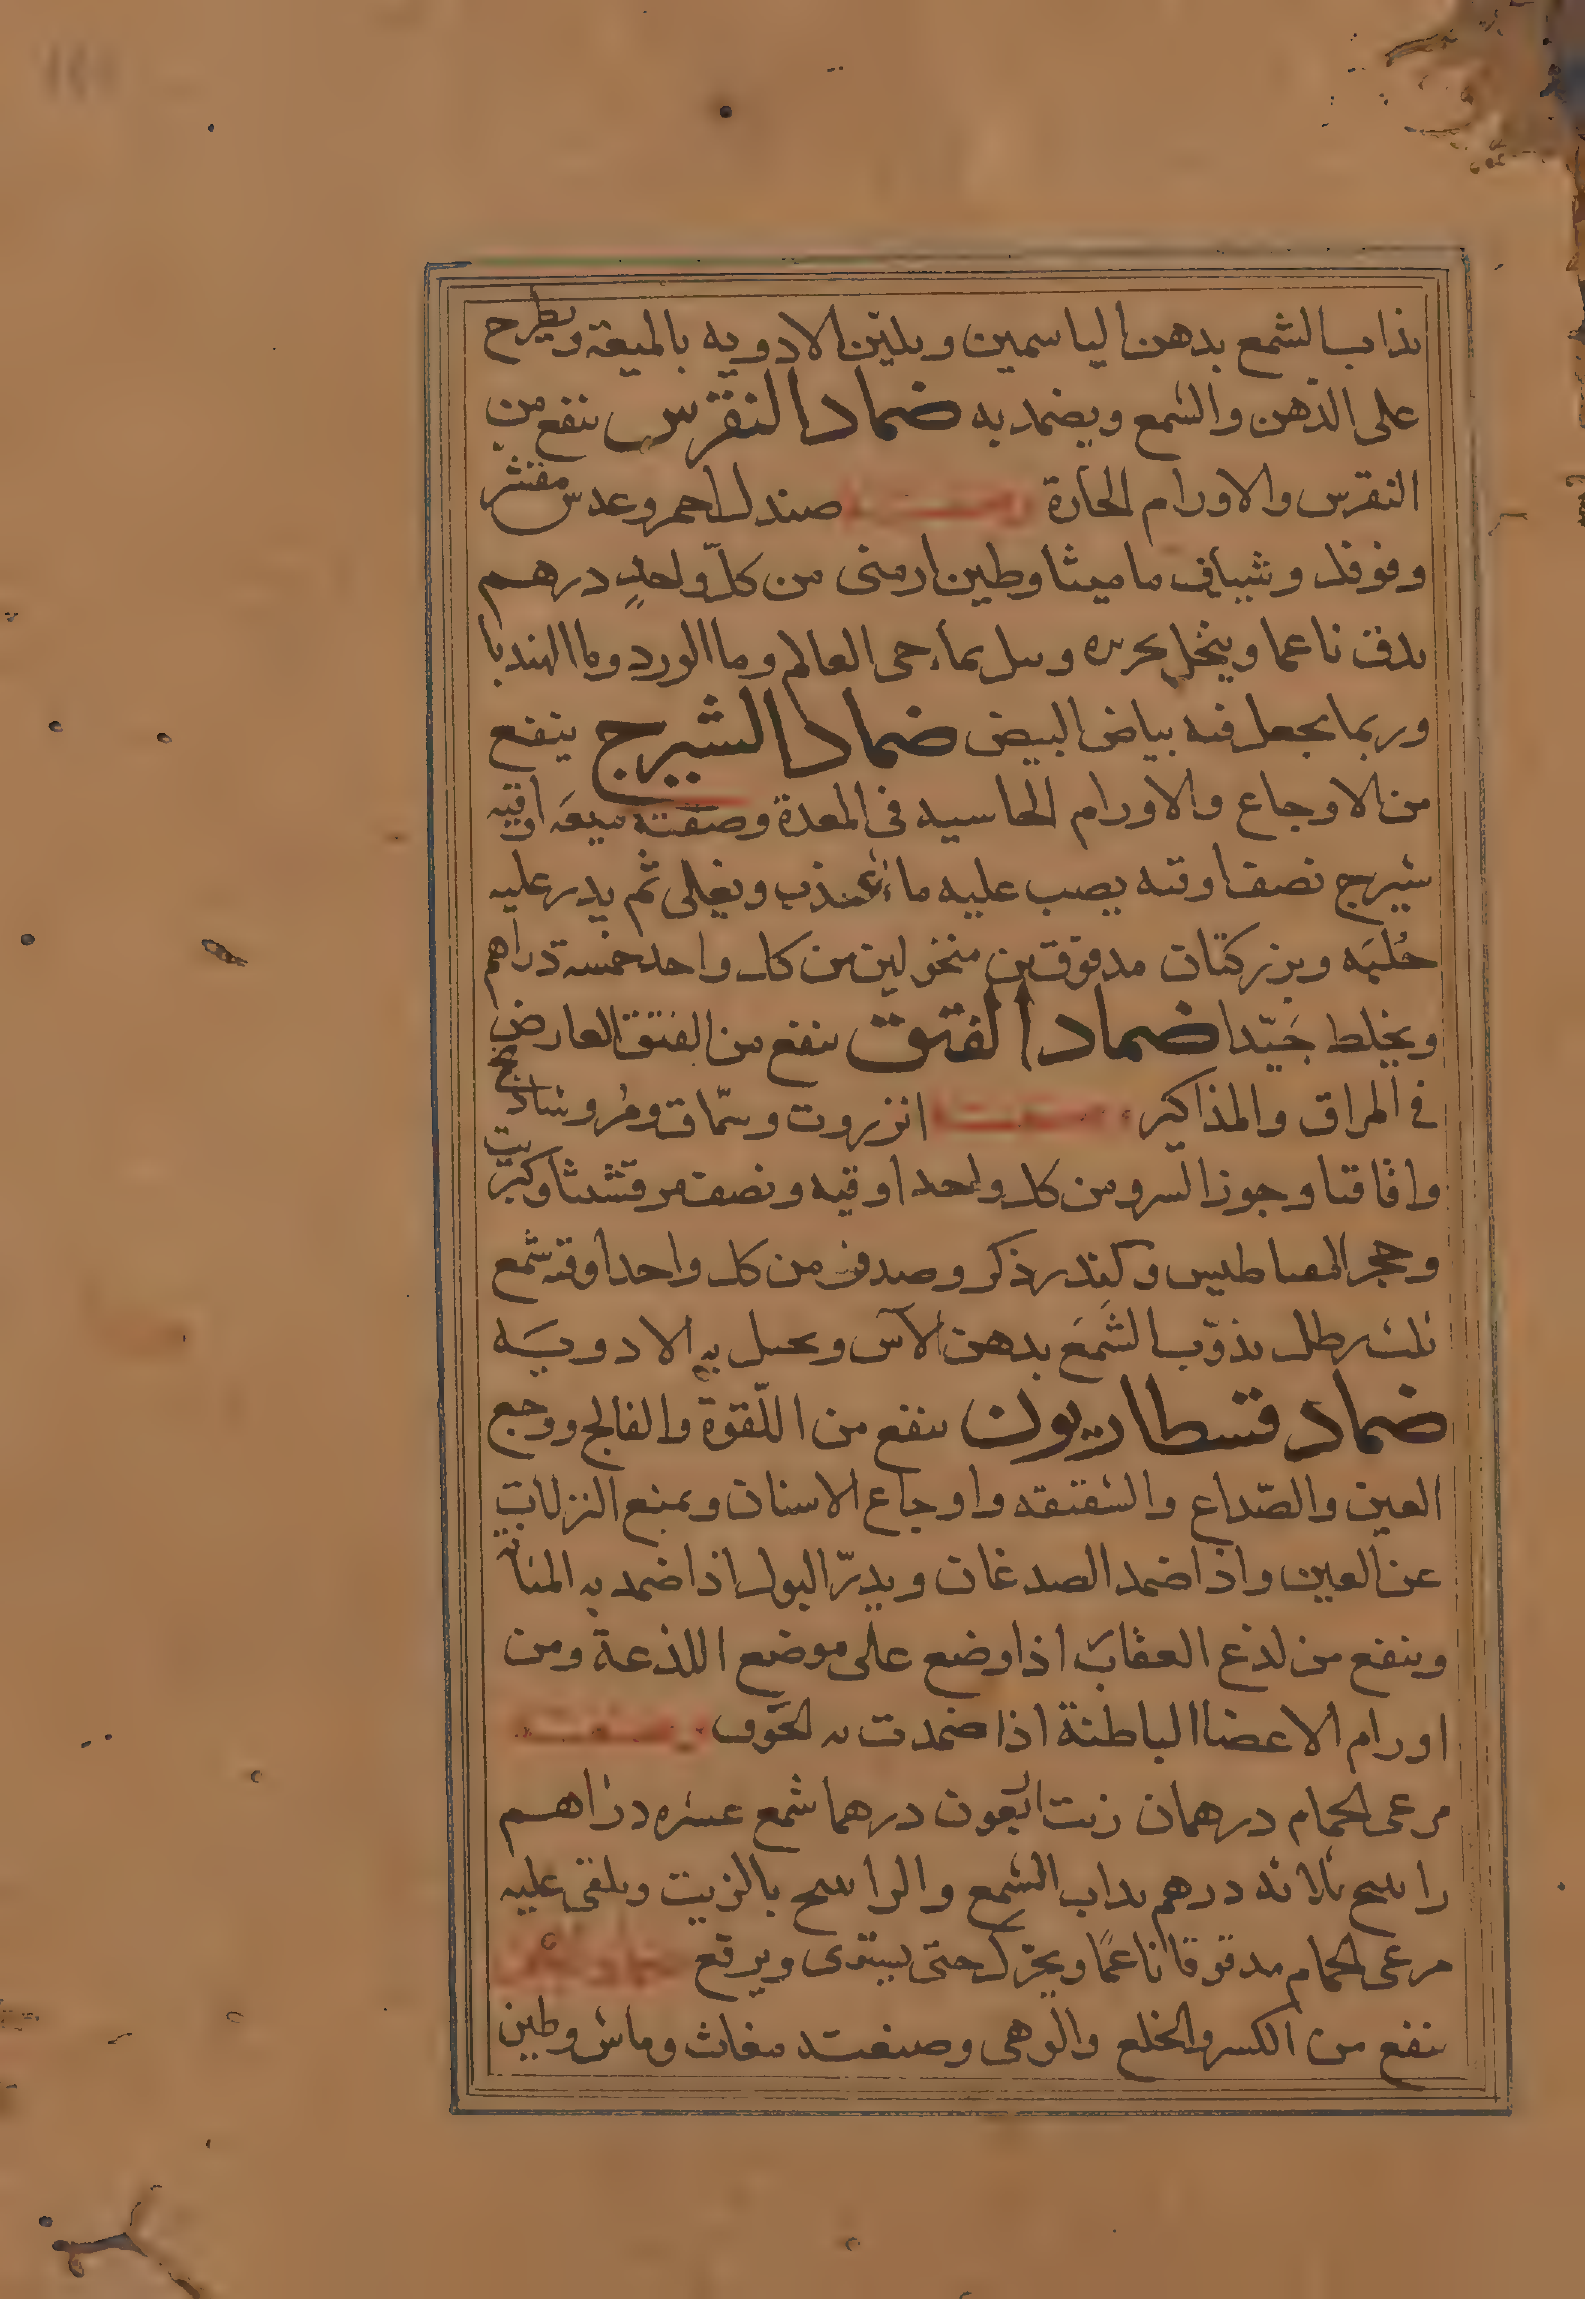 يذاب الشمع بدهن الياسمين ويلين الادويه بالميعة ويطرح
على الدهن والشمع ويضمد به ضماد النقرس ينفع من
النقرس والاورام الحارة صندل احمر وعدس مقشر
وفوفل وشياف ماميثا وطين ارمنى من كلّ واحدٍ درهم
يدق ناعما وينخل بحريره ويبل بماء حى العالم وما الورد وما الهندبا
وربما يجعل فيه بياض البيض ضماد الشيرج ينفع
من الاوجاع والاورام الحاسيه فى المعدة وصفته ميعه اوقيه
شيرج نصف اوقيه يصب عليه ماء عذب ويغلى ثم يذر عليه
حُلبَه وبزر كتان مدقوقين منخولين من كل واحد خمسة دراهم
ويخلط جَيّدا ضماد الفتق ينفع من الفتق العارض
فى المراق والمذاكير انزروت وسمّاق ومر وشاذنج
واقاقيا وجوز السرو من كل واحد اوقيه ونصف مرقشيثا وكبريت
وحجر المغناطيس وكندر ذكر وصدف من كل واحد اوقيه شمع
ثلث رطل يذوّب الشمَع بدهن الآس ويجبل به الادويَه
ضماد قسطاريون ينفع من اللّقوة والفالج ووجع
العين والصّداع والشقيقه واوجاع الاسنان ويمنع النزلات
عن العين واذا ضمد الصدغان ويدرّ البول اذا ضمد به المثانه
وينفع من لذع العقارب اذا وضع على موضع اللذعة ومن
اورام الاعضا الباطنة اذا ضمدت به الجَوف وصفته
مرعى الحمام درهمان زيت انفون درهما شمع عشره دراهم
راتينج ثلاثه درهم يذاب الشمع والراتينج بالزيت ويلقى عليه
مرعى الحمام مدقوقا ناعمًا ويحرّك حتى يستوى ويرفع
ينفع من الكسر والخلع والوهى وصفته مغاث وماش وطين